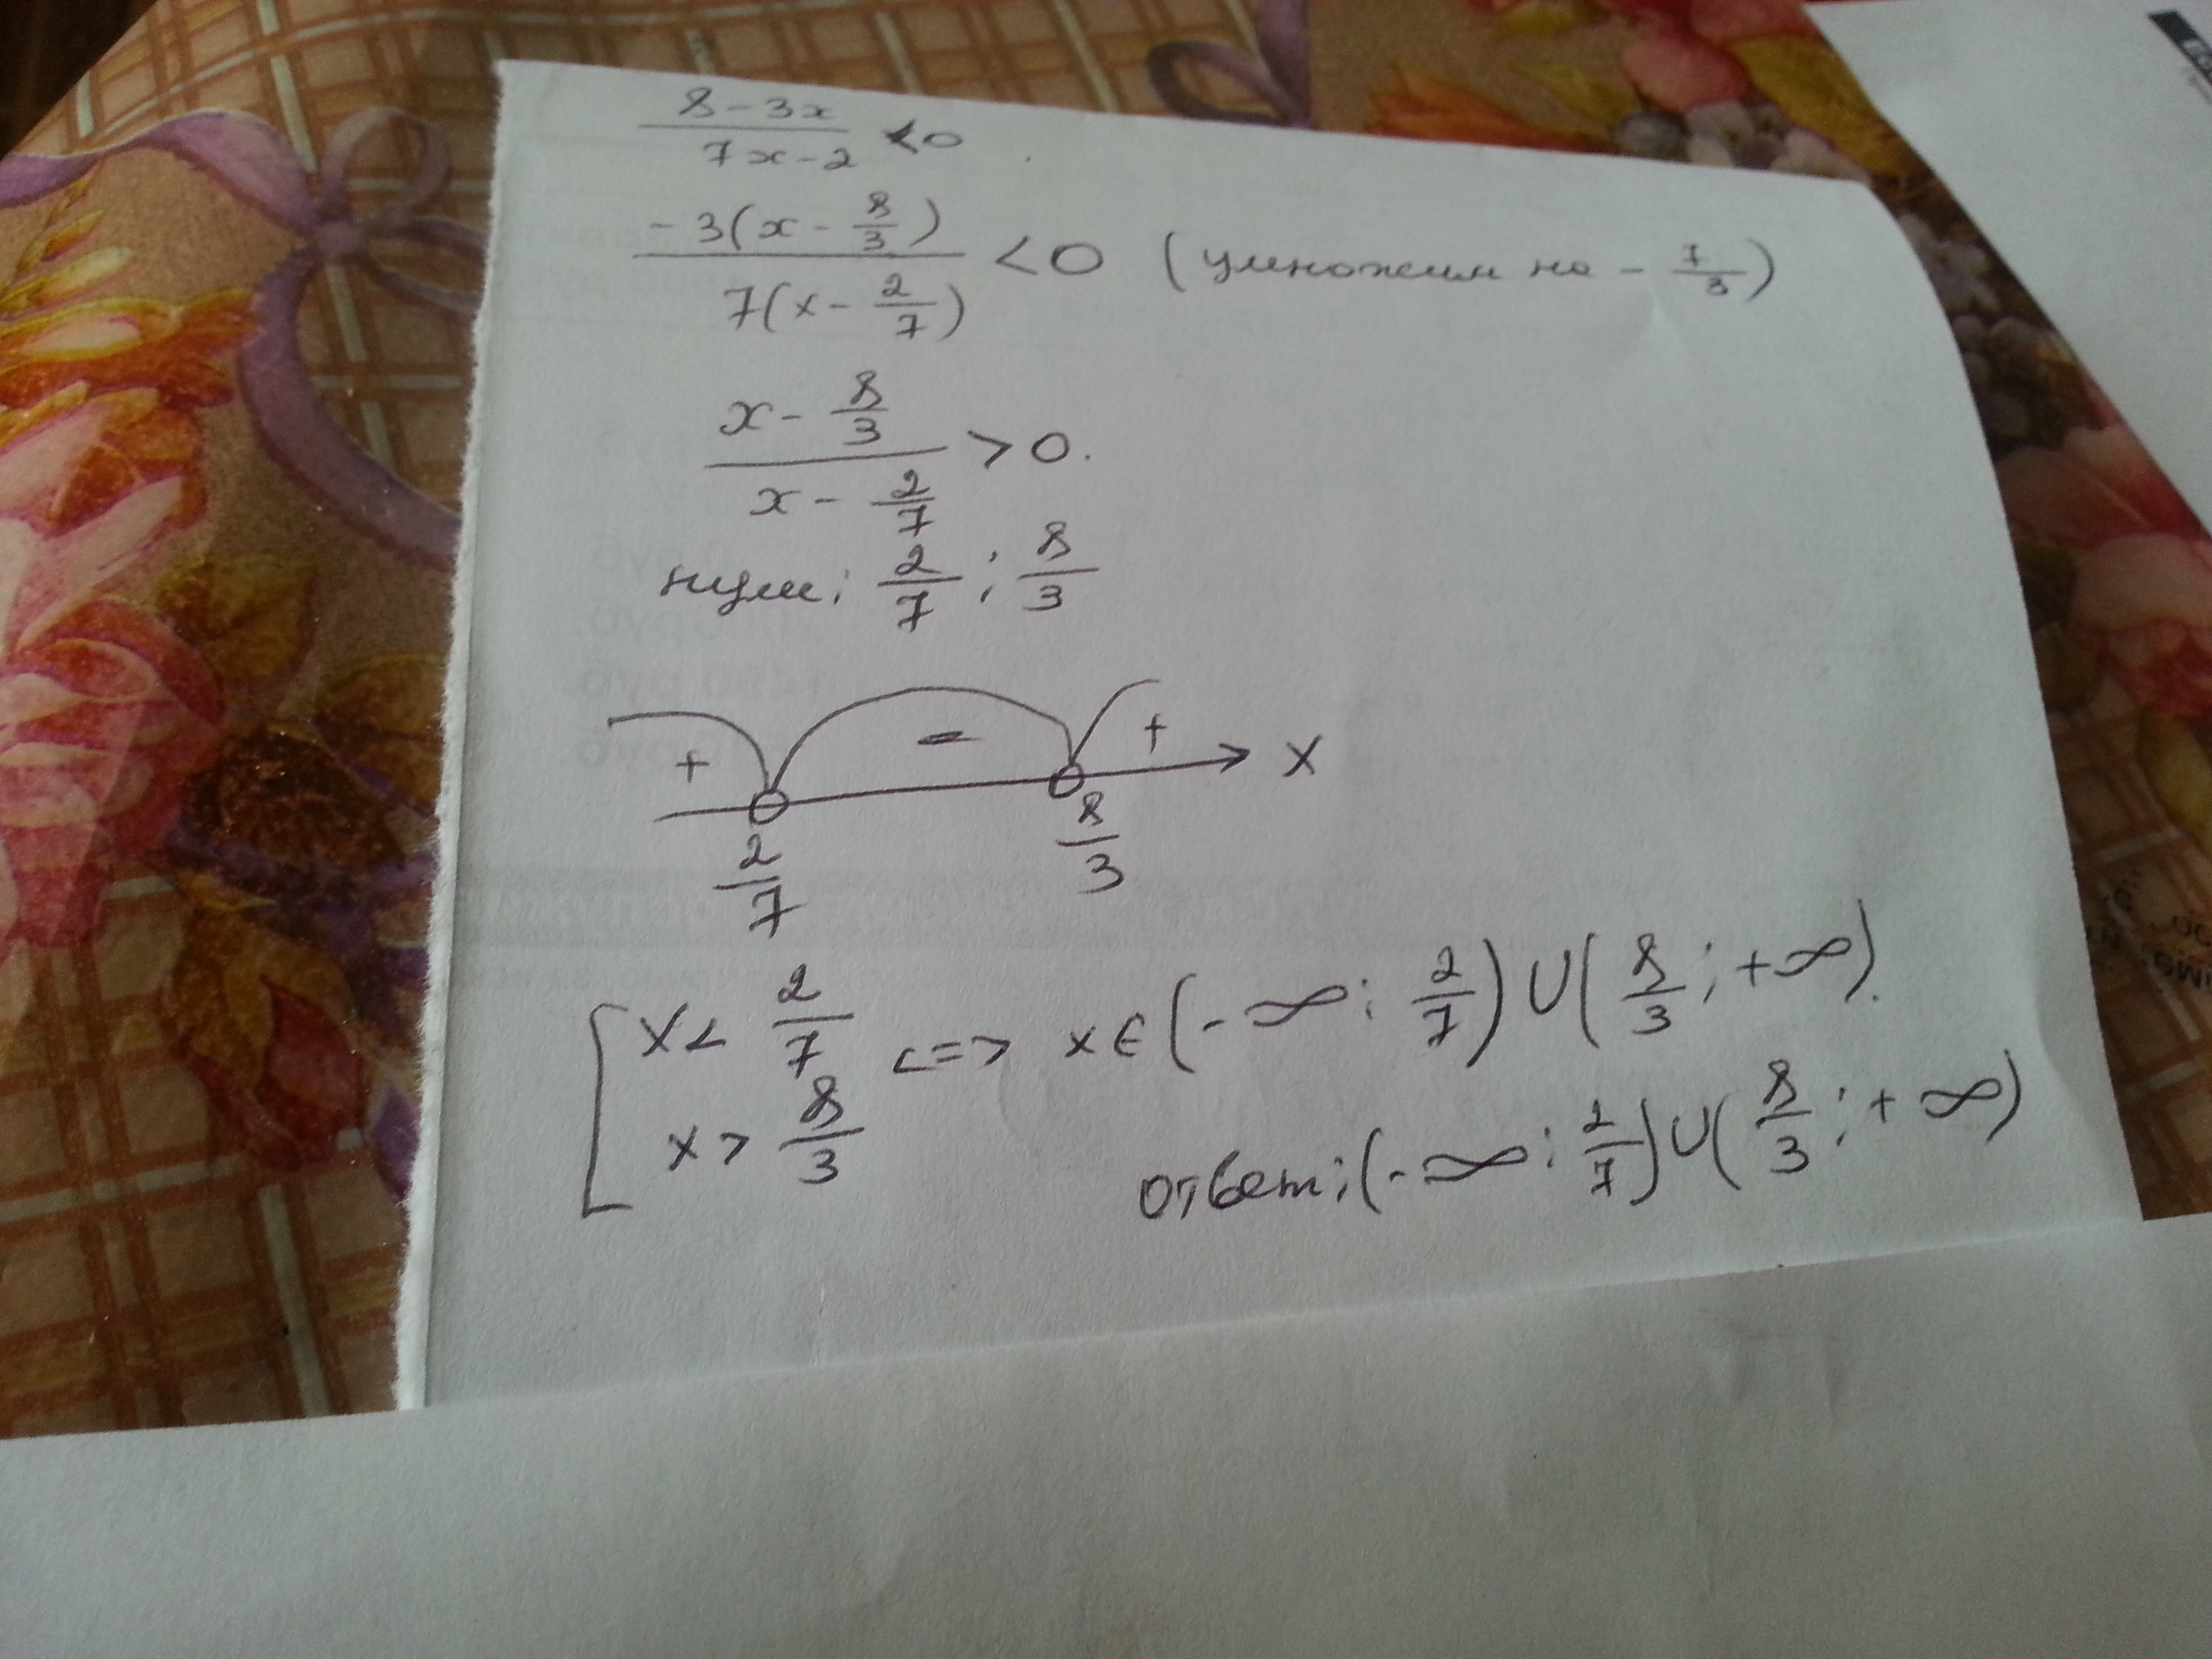 8-3x / 7x-2 < 0
-3(x - 8/3) / 7(x - 2/7) < 0 (умножим на - 7/3)
x - 8/3 / x - 2/7 > 0.
нули: 2/7 ; 8/3
+ - + x
2/7 8/3
[ x < 2/7 <=> x ∈ (-∞; 2/7) ∪ (8/3; +∞).
x > 8/3
ответ: (-∞; 2/7) ∪ (8/3; +∞)